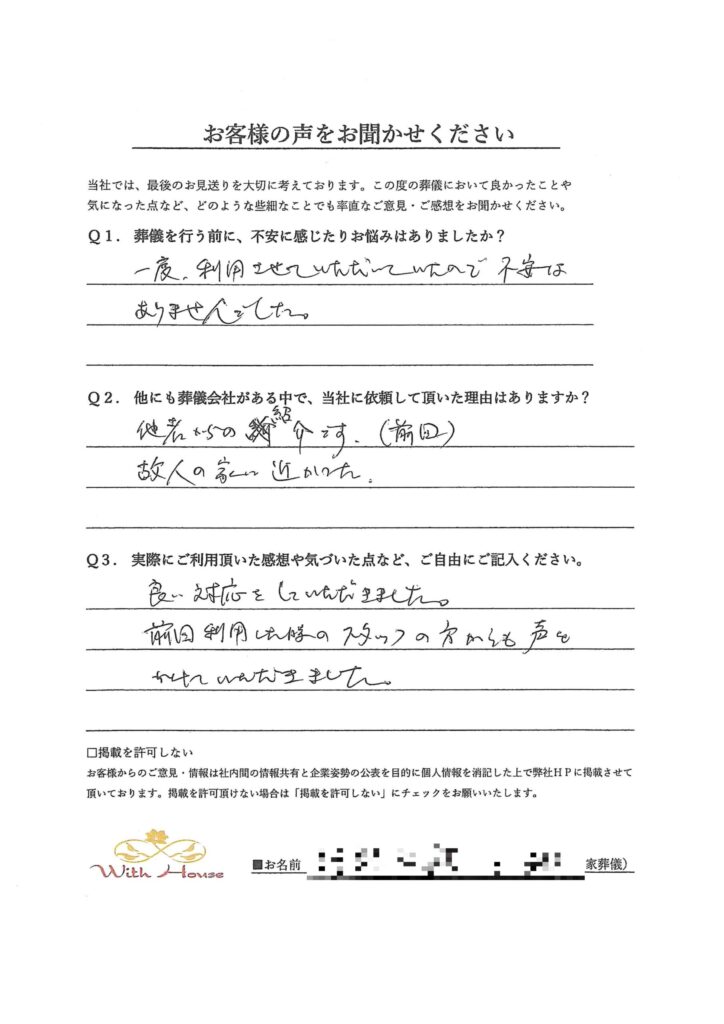 お客様の声をお聞かせください
当社では、最後のお見送りを大切に考えております。この度の葬儀において良かったことや
気になった点など、どのような些細なことでも率直なご意見・ご感想をお聞かせください。
Q1. 葬儀を行う前に、不安に感じたりお悩みはありましたか？
一度、利用させていただいていたので不安は
ありませんでした。
Q2. 他にも葬儀会社がある中で、当社に依頼して頂いた理由はありますか？
他者からの紹介です。(前回)
故人の家に近かった。
Q3. 実際にご利用頂いた感想や気づいた点など、ご自由にご記入ください。
良い対応をしていただきました。
前回利用した際のスタッフの方からも声を
かけていただきました。
□掲載を許可しない
お客様からのご意見・情報は社内間の情報共有と企業姿勢の公表を目的に個人情報を消記した上で弊社HPに掲載させて
頂いております。掲載を許可頂けない場合は「掲載を許可しない」にチェックをお願いいたします。
With House
■お名前 家葬儀）